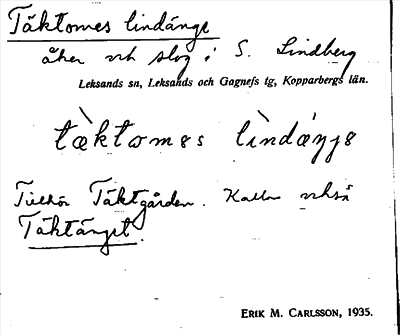 Täktomes lindänge
åker och slog i S. Lindberg
Leksands sn, Leksands och Gagnefs tg, Kopparbergs län.
tæ̀ktomes lìndǽŋje
Tillhör Täktgården. Kallas också
Täktänget.
ERIK M. CARLSSON, 1935.